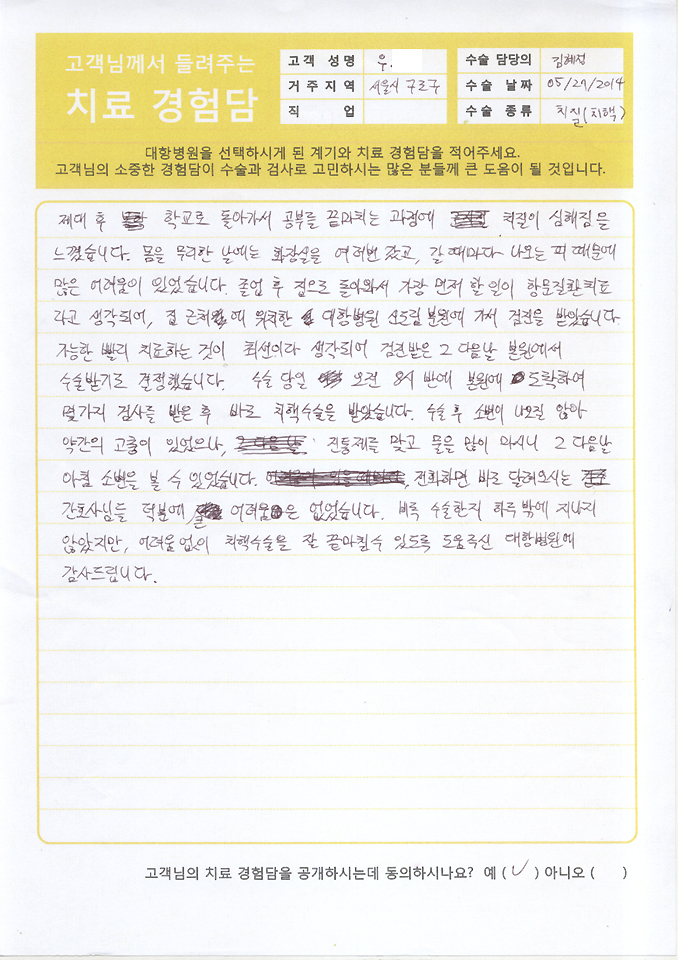 고객님께서 들려주는
치료 경험담
고객 성명 우.
거주지역 서울시 구로구
직 업
수술 담당의 김혜정
수술 날짜 05/29/2014
수술 종류 치질(치핵)
대항병원을 선택하시게 된 계기와 치료 경험담을 적어주세요.
고객님의 소중한 경험담이 수술과 검사로 고민하시는 많은 분들께 큰 도움이 될 것입니다.
제대 후 학교로 돌아가서 공부를 끝마치는 과정에 치질이 심해짐을
느꼈습니다. 몸을 무리한 날에는 화장실을 여러번 갔고, 갈때마다 나오는 피 때문에
많은 어려움이 있었습니다. 졸업 후 집으로 돌아와서 가장 먼저 할 일이 항문질환치료
라고 생각되어, 집 근처에 위치한 대항병원 신도림분원에 가서 검진을 받았습니다.
가능한 빨리 치료하는 것이 최선이라 생각되어 검진받은 그 다음날 본원에서
수술받기로 결정했습니다. 수술 당일 오전 8시 반에 본원에 도착하여
몇가지 검사를 받은 후 바로 치핵수술을 받았습니다. 수술 후 소변이 나오질 않아
약간의 고통이 있었으나, 진통제를 맞고 물을 많이 마시니 그 다음날
아침 소변을 볼 수 있었습니다. 전화하면 바로 달려오시는
간호사님들 덕분에 큰 어려움은 없었습니다. 비록 수술한지 하루 밖에 지나지
않았지만, 어려움 없이 치핵수술을 잘 끝마칠 수 있도록 도움주신 대항병원에
감사드립니다.
고객님의 치료 경험담을 공개하시는데 동의하시나요? 예 (✓) 아니오 ( )